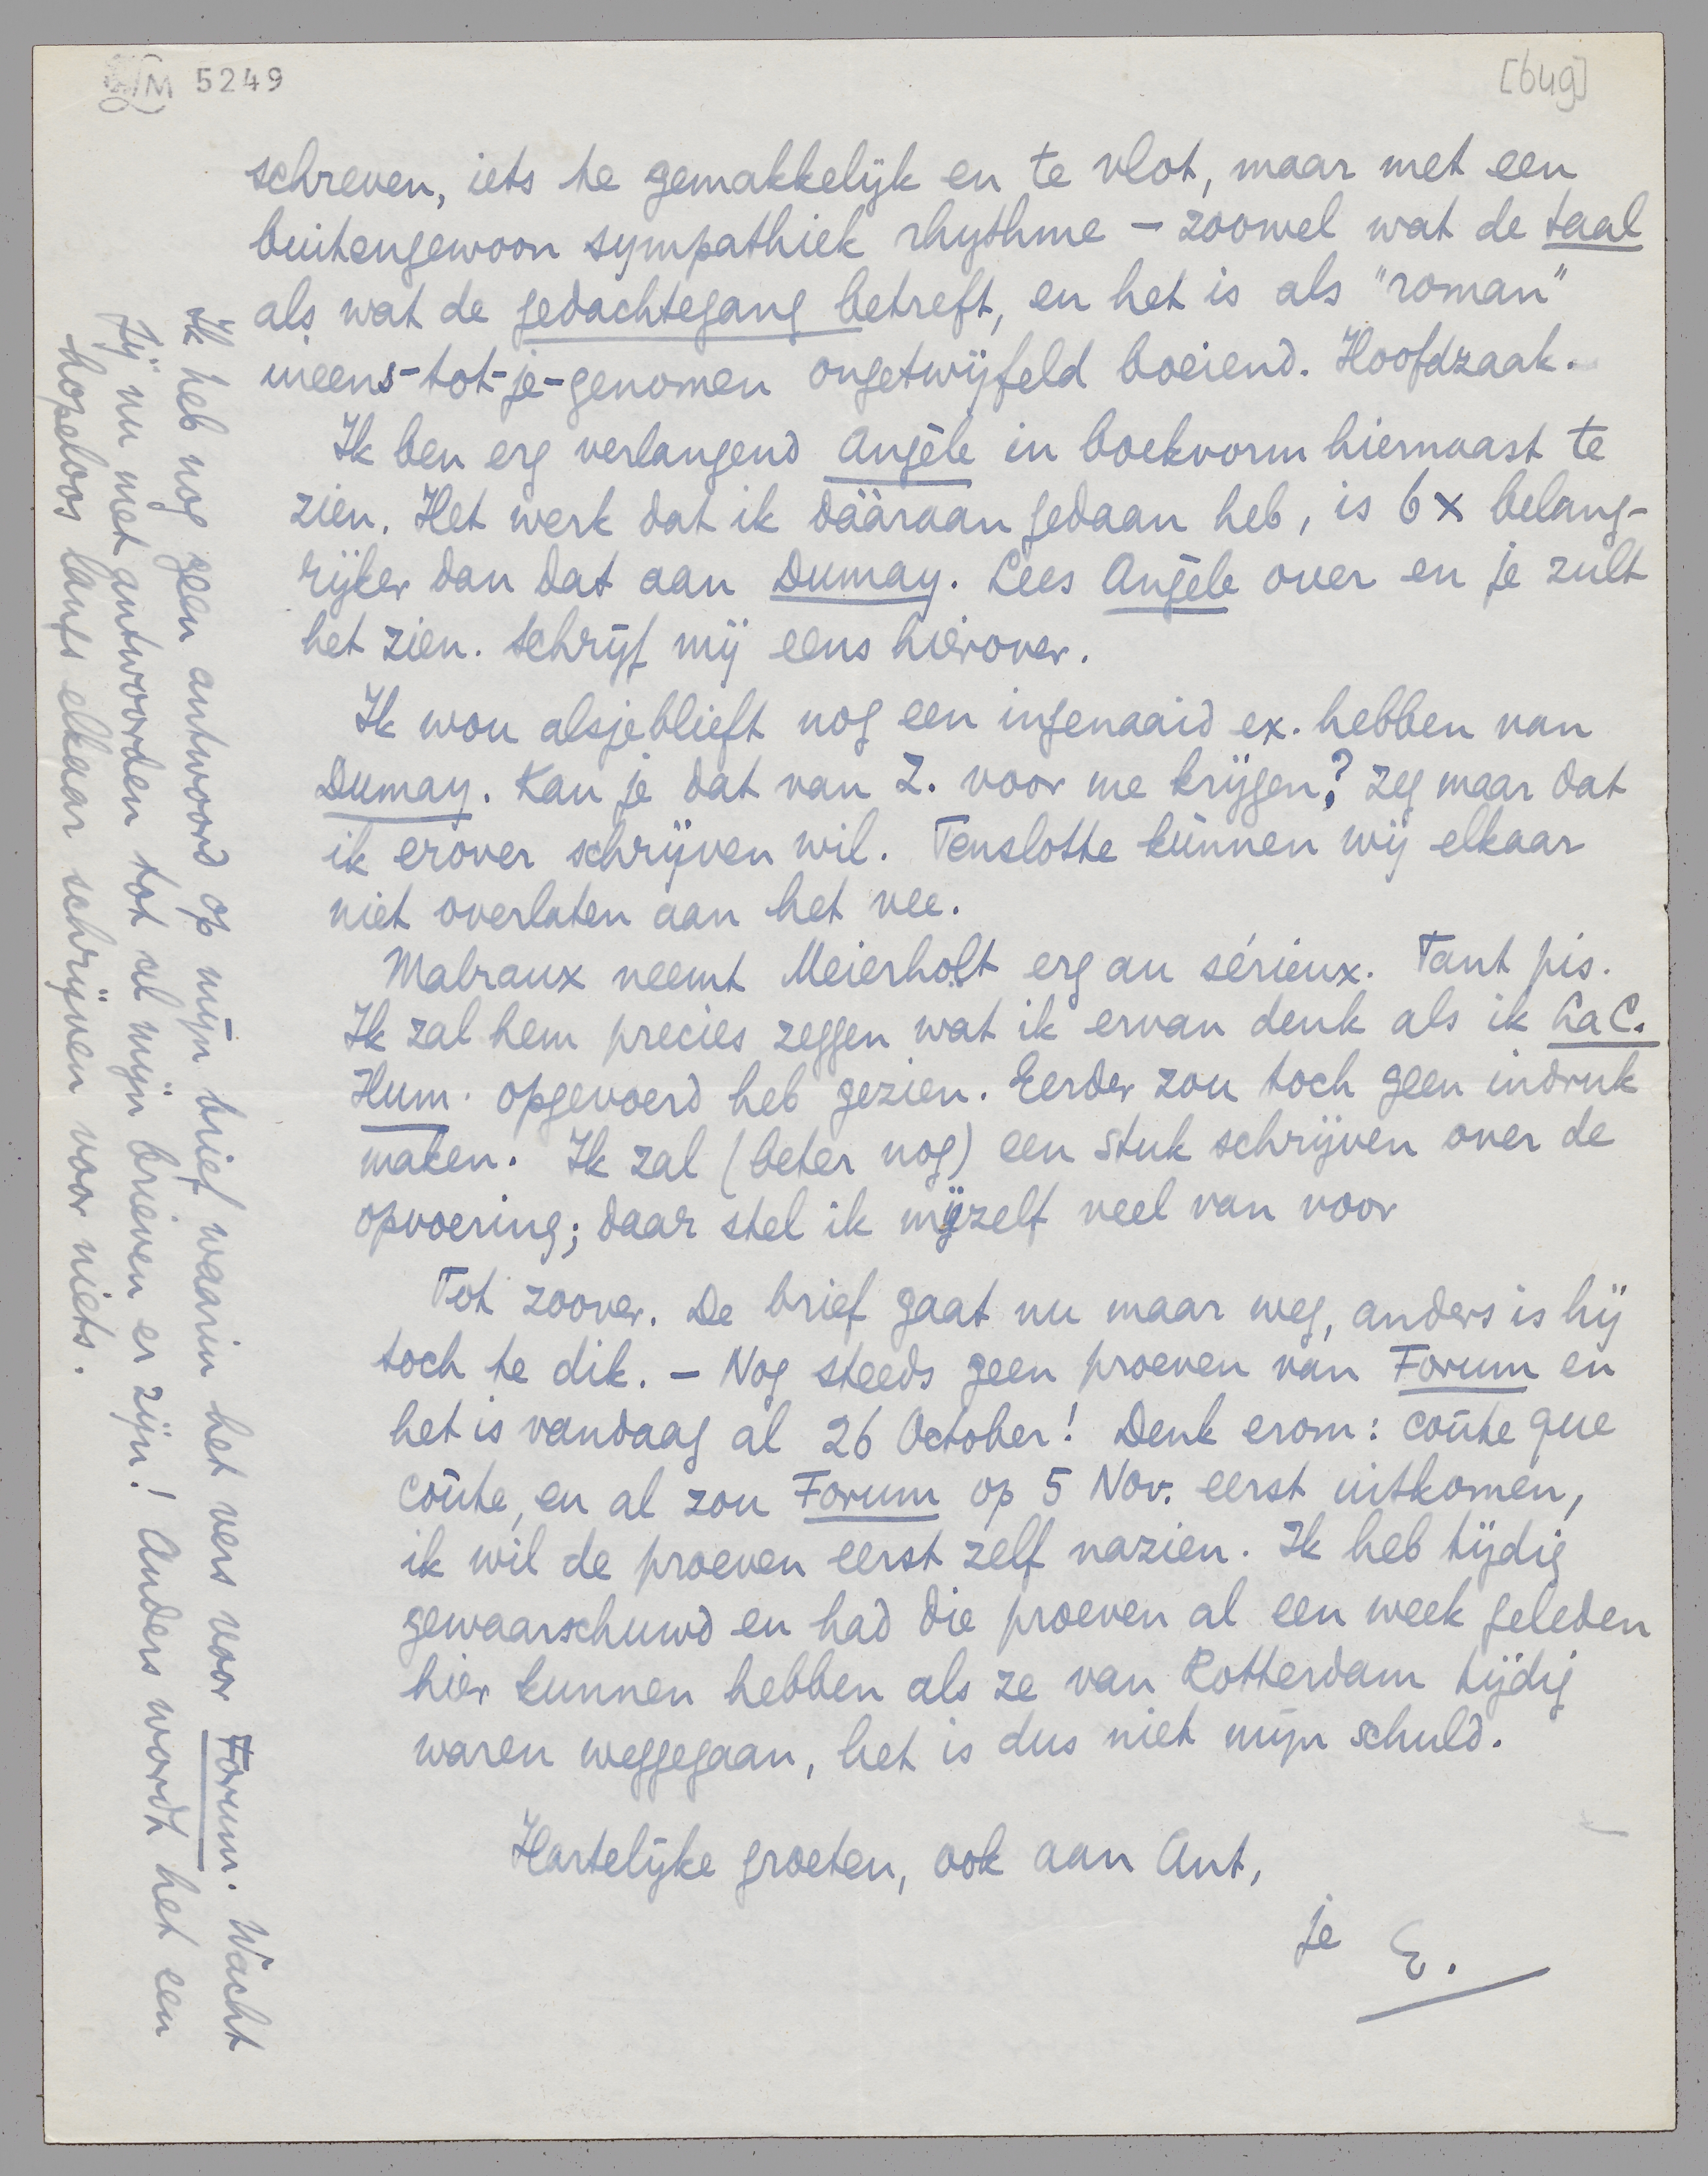 LM 5249
[649]
schreven, iets te gemakkelijk en te vlot, maar met een
buitengewoon sympathiek rhythme – zoowel wat de taal
als wat de gedachtegang betreft, en het is als "roman"
ineens-tot-je-genomen ongetwijfeld boeiend. Hoofdzaak.
Ik ben erg verlangend Angèle in boekvorm hiernaast te
zien. Het werk dat ik dááraan gedaan heb, is 6 x belang-
rijker dan dat aan Dumay. Lees Angèle over en je zult
het zien. Schrijf mij eens hierover.
Ik wou alsjeblieft nog een ingenaaid ex. hebben van
Dumay. Kan je dat van Z. voor me krijgen? Zeg maar dat
ik erover schrijven wil. Tenslotte kunnen wij elkaar
niet overlaten aan het vee.
Malraux neemt Meierholt erg au sérieux. Tant pis.
Ik zal hem precies zeggen wat ik ervan denk als ik La C.
Hum. opgevoerd heb gezien. Eerder zou toch geen indruk
maken. Ik zal (beter nog) een stuk schrijven over de
opvoering; daar stel ik mijzelf veel van voor
Tot zoover. De brief gaat nu maar weg, anders is hij
toch te dik. – Nog steeds geen proeven van Forum en
het is vandaag al 26 October! Denk erom: coûte que
coûte, en al zou Forum op 5 Nov. eerst uitkomen,
ik wil de proeven eerst zelf nazien. Ik heb tijdig
gewaarschuwd en had die proeven al een week geleden
hier kunnen hebben als ze van Rotterdam tijdig
waren weggegaan, het is dus niet mijn schuld.
Hartelijke groeten, ook aan Ant,
je E.
Ik heb nog geen antwoord op mijn brief waarin het vers voor Forum. Wacht
jij nu met antwoorden tot al mijn brieven er zijn! Anders wordt het een
hopeloos langs elkaar schrijven voor niets.